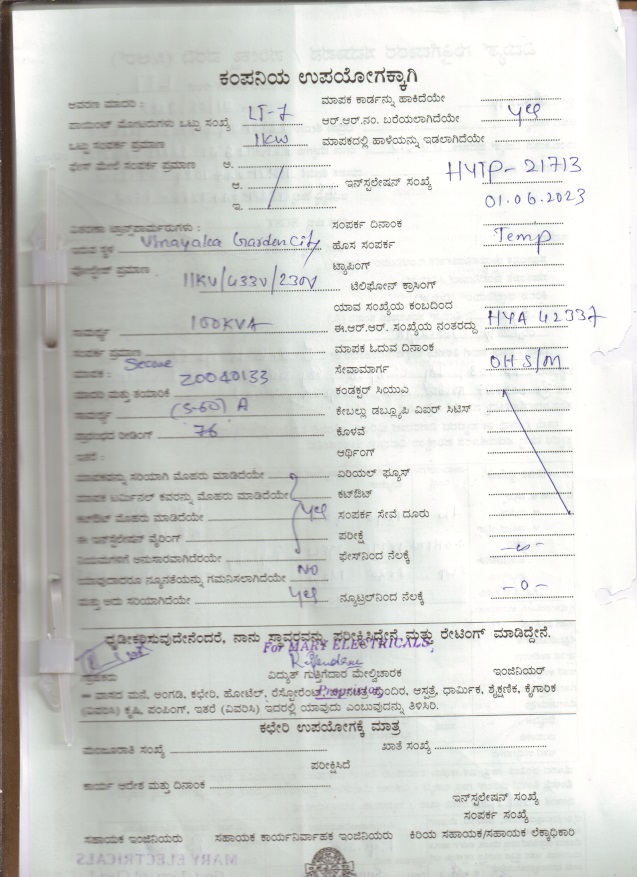 ಕಂಪನಿಯ ಉಪಯೋಗಕ್ಕಾಗಿ
ಆವರಣ ಮಾದರಿ : ಮಾಪಕ ಕಾರ್ಡನ್ನು ಹಾಕಿದೆಯೇ
ಪಾಯಿಂಟ್ ಮೋಟರುಗಳು ಒಟ್ಟು ಸಂಖ್ಯೆ LT-7 ಆರ್.ಆರ್.ನಂ. ಬರೆಯಲಾಗಿದೆಯೇ yes
ಒಟ್ಟು ಸಂಪರ್ಕ ಪ್ರಮಾಣ 1KW ಮಾಪಕದಲ್ಲಿ ಹಾಳೆಯನ್ನು ಇಡಲಾಗಿದೆಯೇ
ಫೇಸ್ ಮೇಲೆ ಸಂಪರ್ಕ ಪ್ರಮಾಣ ಅ.
ಆ. ಇನ್‌ಸ್ಟಲೇಷನ್ ಸಂಖ್ಯೆ HYTP-21713
ಇ. 01.06.2023
ವಿತರಣಾ ಟ್ರಾನ್ಸ್‌ಫಾರ್ಮರುಗಳು : ಸಂಪರ್ಕ ದಿನಾಂಕ
ಇರುವ ಸ್ಥಳ Vinayaka Garden City ಹೊಸ ಸಂಪರ್ಕ Temp
ವೋಲ್ಟೇಜ್ ಪ್ರಮಾಣ 11KV/433V/230V ಟ್ಯಾಪಿಂಗ್
ಟೆಲಿಫೋನ್ ಕ್ರಾಸಿಂಗ್
ಯಾವ ಸಂಖ್ಯೆಯ ಕಂಬದಿಂದ
ಸಾಮರ್ಥ್ಯ 100KVA ಈ.ಆರ್.ಆರ್. ಸಂಖ್ಯೆಯ ನಂತರದ್ದು HYA 42337
ಸಂಪರ್ಕ ಪ್ರಮಾಣ ಮಾಪಕ ಓದುವ ದಿನಾಂಕ
ಮಾಪಕ : Secure ಸೇವಾಮಾರ್ಗ OH S/M
ಮಾದರಿ ಮತ್ತು ತಯಾರಿಕೆ Z0040133 ಕಂಡಕ್ಟರ್ ಸಿಯುಎ
ಸಾಮರ್ಥ್ಯ (5-60) A ಕೇಬಲ್ಲು ಡಬ್ಲ್ಯೂಪಿ ವಿಐರ್ ಸಿಟಿಸ್
ಪ್ರಾರಂಭದ ರೀಡಿಂಗ್ 76 ಕೊಳವೆ
ಇತರೆ : ಆರ್ಥಿಂಗ್
ಮಾಪಕವನ್ನು ಸರಿಯಾಗಿ ಮೊಹರು ಮಾಡಿದೆಯೇ ಏರಿಯಲ್ ಫ್ಯೂಸ್
ಮಾಪಕ ಟರ್ಮಿನಲ್ ಕವರನ್ನು ಮೊಹರು ಮಾಡಿದೆಯೇ ಕಟ್‌ಔಟ್
ಕಟ್‌ಔಟ್ ಮೊಹರು ಮಾಡಿದೆಯೇ yes ಸಂಪರ್ಕ ಸೇವೆ ದೂರು
ಈ ಇನ್‌ಸ್ಟಲೇಷನ್ ವೈರಿಂಗ್ ಪರೀಕ್ಷೆ
ನಿಯಮಗಳಿಗೆ ಅನುಸಾರವಾಗಿದೆಯೇ ಫೇಸ್‌ನಿಂದ ನೆಲಕ್ಕೆ
ಯಾವುದಾದರೂ ನ್ಯೂನತೆಯನ್ನು ಗಮನಿಸಲಾಗಿದೆಯೇ NO
ಮತ್ತು ಅದು ಸರಿಯಾಗಿದೆಯೇ yes ನ್ಯೂಟ್ರಲ್‌ನಿಂದ ನೆಲಕ್ಕೆ -0-
ದೃಢೀಕರಿಸುವುದೇನೆಂದರೆ, ನಾನು ಸ್ಥಾವರವನ್ನು ಪರೀಕ್ಷಿಸಿದ್ದೇನೆ ಮತ್ತು ರೇಟಿಂಗ್ ಮಾಡಿದ್ದೇನೆ.
For MARY ELECTRICALS,
ವಿದ್ಯುತ್ ಗುತ್ತಿಗೆದಾರ ಮೇಲ್ವಿಚಾರಕ ಇಂಜಿನಿಯರ್
Proprietor
ವಾಸದ ಮನೆ, ಅಂಗಡಿ, ಕಛೇರಿ, ಹೋಟೆಲ್, ರೆಸ್ಟೋರೆಂಟ್, ಆಸ್ಪತ್ರೆ, ಧಾರ್ಮಿಕ, ಶೈಕ್ಷಣಿಕ, ಕೈಗಾರಿಕೆ
(ವಿವರಿಸಿ) ಕೃಷಿ, ಪಂಪಿಂಗ್, ಇತರೆ (ವಿವರಿಸಿ) ಇದರಲ್ಲಿ ಯಾವುದು ಎಂಬುವುದನ್ನು ತಿಳಿಸಿರಿ.
ಕಛೇರಿ ಉಪಯೋಗಕ್ಕೆ ಮಾತ್ರ
ಮಂಜೂರಾತಿ ಸಂಖ್ಯೆ ಖಾತೆ ಸಂಖ್ಯೆ
ಪರೀಕ್ಷಿಸಿದೆ
ಕಾರ್ಯ ಆದೇಶ ಮತ್ತು ದಿನಾಂಕ
ಇನ್‌ಸ್ಟಲೇಷನ್ ಸಂಖ್ಯೆ
ಸಂಪರ್ಕ ಸಂಖ್ಯೆ
ಸಹಾಯಕ ಇಂಜಿನಿಯರು ಸಹಾಯಕ ಕಾರ್ಯನಿರ್ವಾಹಕ ಇಂಜಿನಿಯರು ಕಿರಿಯ ಸಹಾಯಕ/ಸಹಾಯಕ ಲೆಕ್ಕಾಧಿಕಾರಿ